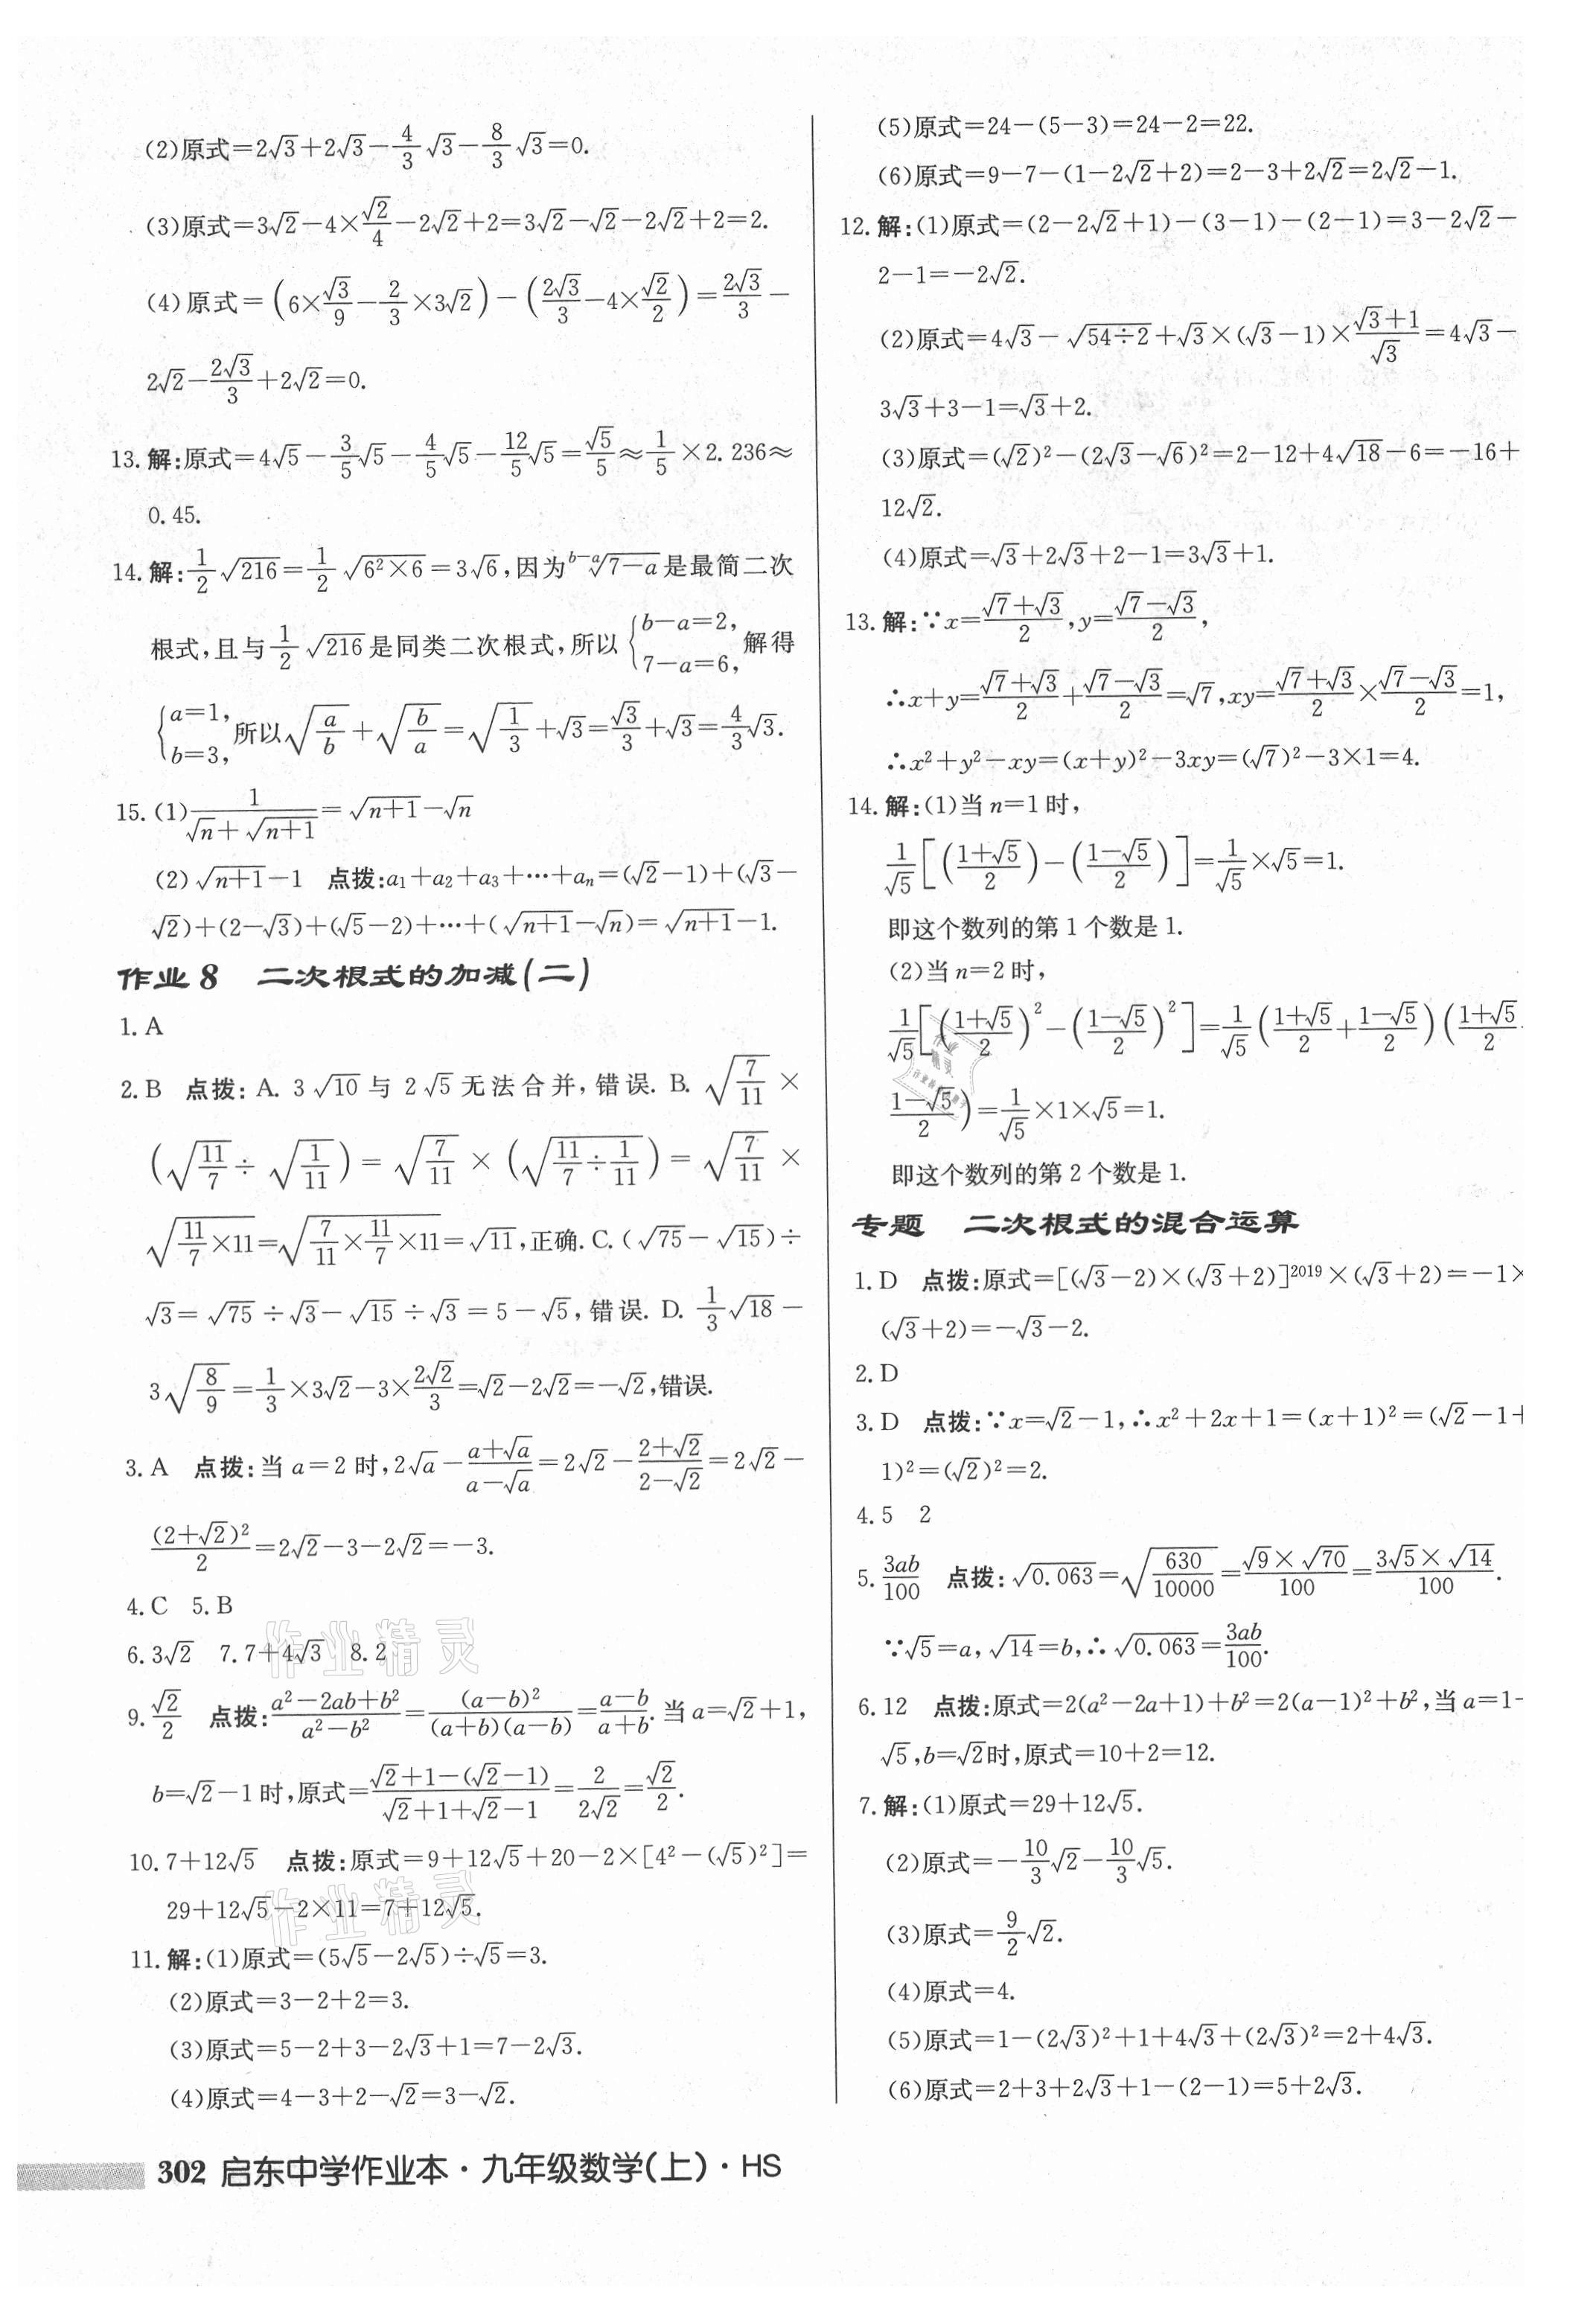 (2)原式=2√3+2√3−4/3√3−8/3√3=0.
(3)原式=3√2−4×√2/4−2√2+2=3√2−√2−2√2+2=2.
(4)原式=(6×√3/9−2/3×3√2)−(2√3/3−4×√2/2)=2√3/3−
2√2−2√3/3+2√2=0.
13. 解:原式=4√5−3/5√5−4/5√5−12/5√5=√5/5≈1/5×2.236≈
0.45.
14. 解:1/2√216=1/2√(6²×6)=3√6,因为 ᵇ⁻ᵃ√(7−a)是最简二次
根式,且与1/2√216是同类二次根式,所以{b−a=2, 7−a=6, 解得
{a=1, b=3, 所以√(a/b)+√(b/a)=√(1/3)+√3=√3/3+√3=4/3√3.
15. (1)1/(√n+√(n+1))=√(n+1)−√n
(2)√(n+1)−1 点拨:a₁+a₂+a₃+⋯+aₙ=(√2−1)+(√3−
√2)+(2−√3)+(√5−2)+⋯+(√(n+1)−√n)=√(n+1)−1.
作业8 二次根式的加减(二)
1. A
2. B 点拨: A. 3√10与2√5无法合并,错误. B. √(7/11)×
(√(11/7)÷√(1/11))=√(7/11)×(√(11/7÷1/11))=√(7/11)×
√(11/7×11)=√(7/11×11/7×11)=√11,正确. C. (√75−√15)÷
√3=√75÷√3−√15÷√3=5−√5,错误. D. 1/3√18−
3√(8/9)=1/3×3√2−3×2√2/3=√2−2√2=−√2,错误.
3. A 点拨:当a=2时,2√a−(a+√a)/(a−√a)=2√2−(2+√2)/(2−√2)=2√2−
(2+√2)²/2=2√2−3−2√2=−3.
4. C 5. B
6. 3√2 7. 7+4√3 8. 2
9. √2/2 点拨:(a²−2ab+b²)/(a²−b²)=(a−b)²/((a+b)(a−b))=(a−b)/(a+b). 当a=√2+1,
b=√2−1时,原式=(√2+1−(√2−1))/(√2+1+√2−1)=2/(2√2)=√2/2.
10. 7+12√5 点拨:原式=9+12√5+20−2×[4²−(√5)²]=
29+12√5−2×11=7+12√5.
11. 解:(1)原式=(5√5−2√5)÷√5=3.
(2)原式=3−2+2=3.
(3)原式=5−2+3−2√3+1=7−2√3.
(4)原式=4−3+2−√2=3−√2.
(5)原式=24−(5−3)=24−2=22.
(6)原式=9−7−(1−2√2+2)=2−3+2√2=2√2−1.
12. 解:(1)原式=(2−2√2+1)−(3−1)−(2−1)=3−2√2−
2−1=−2√2.
(2)原式=4√3−√(54÷2)+√3×(√3−1)×(√3+1)/√3=4√3−
3√3+3−1=√3+2.
(3)原式=(√2)²−(2√3−√6)²=2−12+4√18−6=−16+
12√2.
(4)原式=√3+2√3+2−1=3√3+1.
13. 解:∵x=(√7+√3)/2,y=(√7−√3)/2,
∴x+y=(√7+√3)/2+(√7−√3)/2=√7,xy=(√7+√3)/2×(√7−√3)/2=1,
∴x²+y²−xy=(x+y)²−3xy=(√7)²−3×1=4.
14. 解:(1)当n=1时,
1/√5[((1+√5)/2)−((1−√5)/2)]=1/√5×√5=1.
即这个数列的第1个数是1.
(2)当n=2时,
1/√5[((1+√5)/2)²−((1−√5)/2)²]=1/√5((1+√5)/2+(1−√5)/2)((1+√5)/2
(1−√5)/2)=1/√5×1×√5=1.
即这个数列的第2个数是1.
专题 二次根式的混合运算
1. D 点拨:原式=[(√3−2)×(√3+2)]²⁰¹⁹×(√3+2)=−1×
(√3+2)=−√3−2.
2. D
3. D 点拨:∵x=√2−1,∴x²+2x+1=(x+1)²=(√2−1+
1)²=(√2)²=2.
4. 5 2
5. 3ab/100 点拨:√0.063=√(630/10000)=(√9×√70)/100=(3√5×√14)/100.
∵√5=a,√14=b,∴√0.063=3ab/100.
6. 12 点拨:原式=2(a²−2a+1)+b²=2(a−1)²+b²,当a=1−
√5,b=√2时,原式=10+2=12.
7. 解:(1)原式=29+12√5.
(2)原式=−10/3√2−10/3√5.
(3)原式=9/2√2.
(4)原式=4.
(5)原式=1−(2√3)²+1+4√3+(2√3)²=2+4√3.
(6)原式=2+3+2√3+1−(2−1)=5+2√3.
作业精灵
作业精灵
302 启东中学作业本·九年级数学(上)·HS